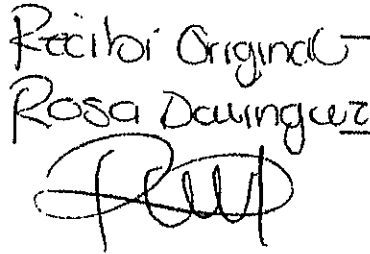 Recibi Original
Rosa Dominguez